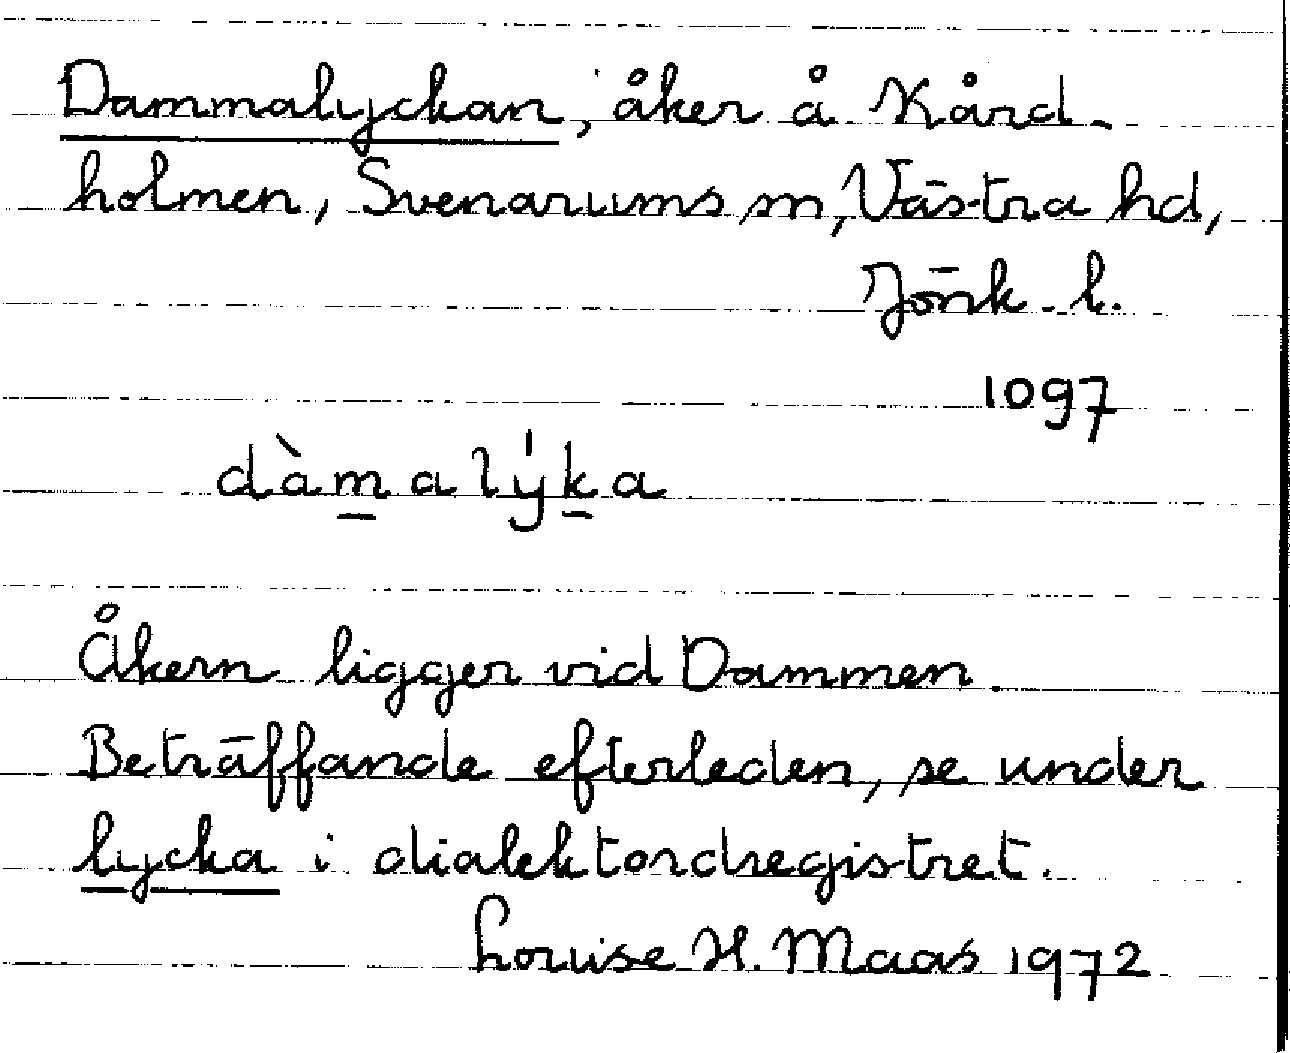 Dammalyckan, åker å Kård-
holmen, Svenarums sn, Västra hd,
Jönk. l.
1097
dàm̱alýḵa
Åkern ligger vid Dammen.
Beträffande efterleden, se under
lycka i dialektordregistret.
Louise H. Maas 1972